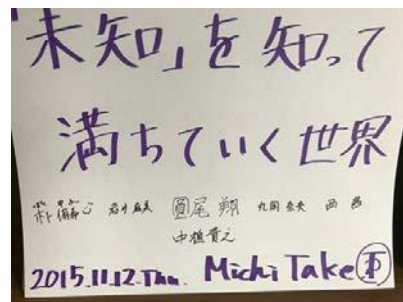 「未知」を知って
満ちていく世界
圓尾 翔
中植貴之
2015.11.12.Thu. Michi Take